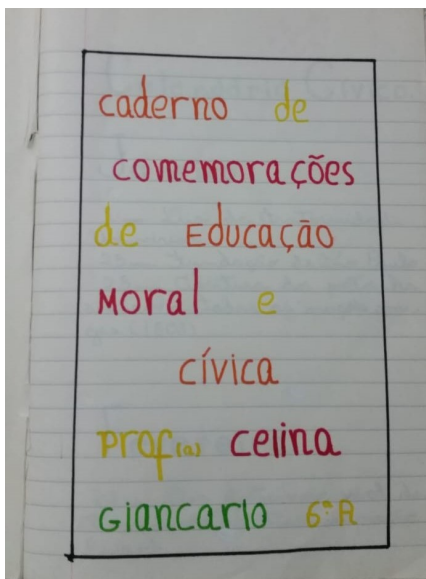 caderno de
comemorações
de Educação
Moral e
cívica
Prof(a) Celina
Giancarlo 6ª A